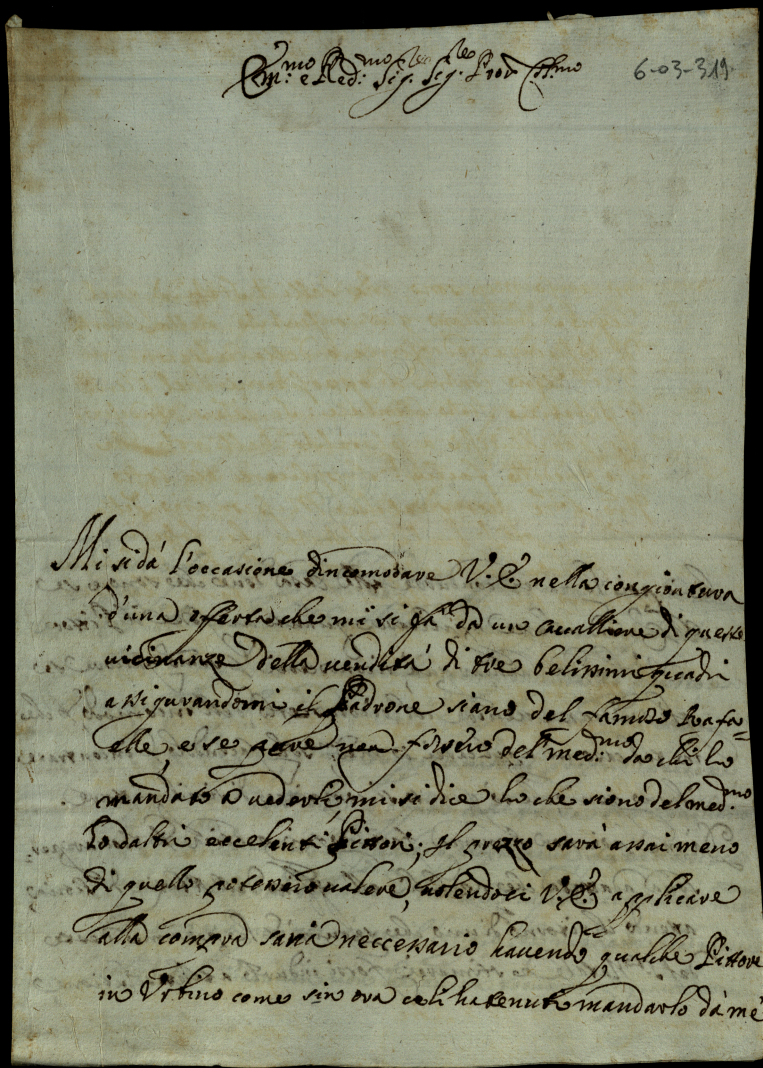 Em.mo e Red.mo Sig.re Sig.re Prov. Coll.mo
6-03-319
Mi si dá l'occasione d'incomodare V. E. nella congiontura
d'una offerta che mi si fá da un Cavalliere di queste
vicinanze della vendita di tre belissimi quadri
assigurandomi il Padrone siano del famoso Rafa=
elle, e se pure non fossero del med.mo da chi ho
mandato a vederli, mi si dice ho che siono del med.mo
ho d'altri eccelenti Pittori; Il prezzo sará assai meno
di quello potessero valere, volendoci V. E. applicare
alla compra saria neccessario havendo qualche Pittore
in Urbino come sin ora celi ha tenuti mandarlo dá me